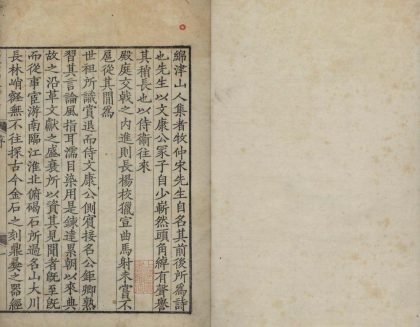 綿津山人集者牧仲宋先生自名其前後所為詩
也先生以文康公冢子自少嶄然頭角綽有聲譽
其稍長也以侍衛往來
殿庭交戟之内進則長楊校獵宣曲馬射未嘗不
扈從其間為
世祖所識賞退而侍文康公側賓接名公鉅卿熟
習其言論風指耳濡目染用是鍊達累朝以來典
故之沿革文獻之盛衰所以資其見聞者既至既
而從事宦游南臨江淮北俯碣石所過名山大川
長林峭壑無不往探古今金石之刻鼎彝之器經